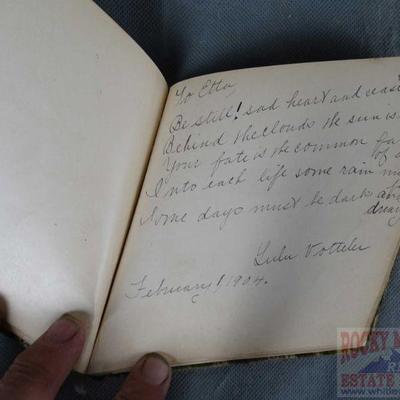 To Etta,
Be still! sad heart and cease
Behind the clouds the sun is
Your fate is the common fa
of a
Into each life some rain mu
Some days must be dark and
dreary
Lulu Votteler
February 1, 1904.
ROCKY M
ESTATE
www.whitle